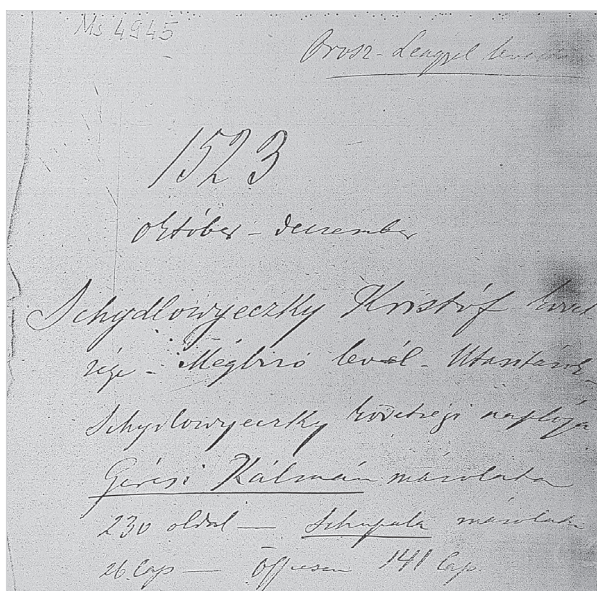 Ms 4945
Orosz-Lengyel
1523
október – december
Schydlowyeczky Kristóf követ-
sége – Megbizó levél – Utasitások
Schydlowyeczky követségi naplója
Gérési Kálmán másolata
230 oldal – másolata
26 lap – Összesen 141 lap.